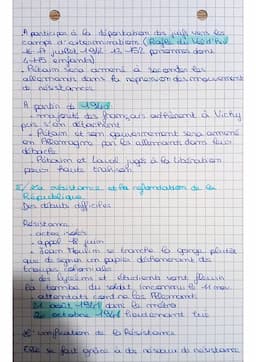 A participer à la déportation des juifs vers les
camps d'extermination (Rafle du Vel d'Hiv
le 17 juillet 1942 13 152 personnes dont
4 115 enfants)
• Pétain sera amené à seconder les
allemands dans la répression des mouvements
de résistances.
A partir de 1940
• majorité des français adhèrent à Vichy
puis s'en détachent
• Pétain et son gouvernement sera amené
en Allemagne par les allemands dans leur
débacle
• Pétain et Laval jugés à la Libération
pour haute trahison
II/ La résistance et la refondation de la
République
Des débuts difficiles
Résistance
• actes isolés
• appel 18 juin
• Jean Moulin se tranche la gorge plutôt
que de signer un papier déshonorant des
troupes coloniales
• des lycéens et étudiants vont fleurir
la tombe du soldat inconnu le 11 nov.
• attentats contre les Allemands
21 août 1941 dans le métro
20 octobre 1941 lieutenant tué
unification de la Résistance
Elle se fait grâce à des réseaux de résistance